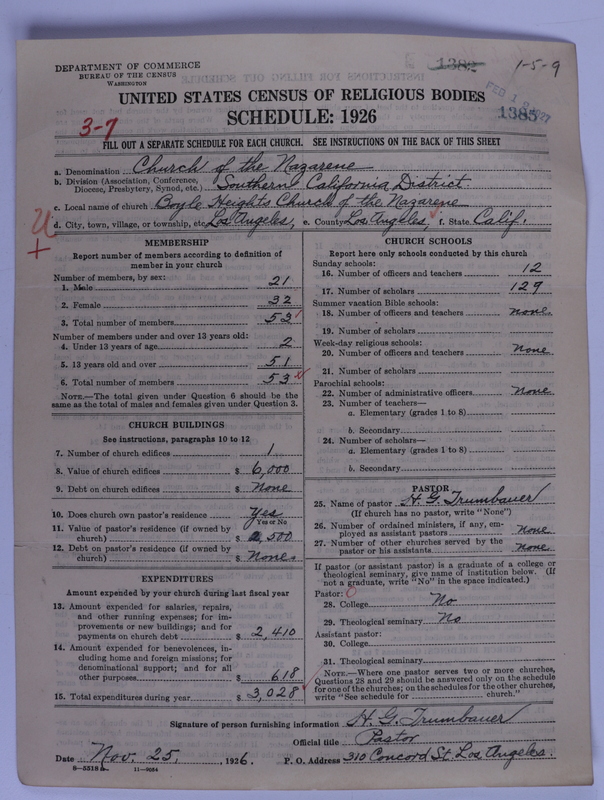 DEPARTMENT OF COMMERCE
BUREAU OF THE CENSUS
WASHINGTON
1382
1-5-9
FEB 1 1927
1385
UNITED STATES CENSUS OF RELIGIOUS BODIES
SCHEDULE: 1926
3-7
FILL OUT A SEPARATE SCHEDULE FOR EACH CHURCH. SEE INSTRUCTIONS ON THE BACK OF THIS SHEET
a. Denomination Church of the Nazarene
b. Division (Association, Conference, Diocese, Presbytery, Synod, etc.) Southern California District.
c. Local name of church Boyle Heights Church of the Nazarene
d. City, town, village, or township, etc. Los Angeles, e. County Los Angeles, f. State Calif.
MEMBERSHIP
Report number of members according to definition of
member in your church
Number of members, by sex:
1. Male 21
2. Female 32
3. Total number of members 53
Number of members under and over 13 years old:
4. Under 13 years of age 2
5. 13 years old and over 51
6. Total number of members 53
NOTE.—The total given under Question 6 should be
same as the total of males and females given under Question 3.
CHURCH BUILDINGS
See instructions, paragraphs 10 to 12
7. Number of church edifices 1
8. Value of church edifices $ 6,000
9. Debt on church edifices $ None
10. Does church own pastor's residence Yes
Yes or No
11. Value of pastor's residence (if owned by
church) $ 2,500
12. Debt on pastor's residence (if owned by
church) $ None
EXPENDITURES
Amount expended by your church during last fiscal year
13. Amount expended for salaries, repairs,
and other running expenses; for im-
provements or new buildings; and for
payments on church debt $ 2,410
14. Amount expended for benevolences, in-
cluding home and foreign missions; for
denominational support; and for all
other purposes $ 618
15. Total expenditures during year $ 3,028
CHURCH SCHOOLS
Report here only schools conducted by this church
Sunday schools:
16. Number of officers and teachers 12
17. Number of scholars 129
Summer vacation Bible schools:
18. Number of officers and teachers None
19. Number of scholars
Week-day religious schools:
20. Number of officers and teachers None
21. Number of scholars
Parochial schools:
22. Number of administrative officers None
23. Number of teachers—
a. Elementary (grades 1 to 8)
b. Secondary
24. Number of scholars—
a. Elementary (grades 1 to 8)
b. Secondary
PASTOR
25. Name of pastor H. G. Trumbauer
(If church has no pastor, write "None")
26. Number of ordained ministers, if any, em-
ployed as assistant pastors None
27. Number of other churches served by the
pastor or his assistants None
If pastor (or assistant pastor) is a graduate of a college or
theological seminary, give name of institution below. (If
not a graduate, write "No" in the space indicated.)
Pastor:
28. College No
29. Theological seminary No
Assistant pastor:
30. College
31. Theological seminary
NOTE.—Where one pastor serves two or more churches,
Questions 28 and 29 should be answered only on the schedule
for one of the churches; on the schedules for the other churches,
write "See schedule for church."
Signature of person furnishing information H. G. Trumbauer
Official title Pastor
Date Nov. 25, 1926. P. O. Address 310 Concord St. Los Angeles.
8-5518 11-9034